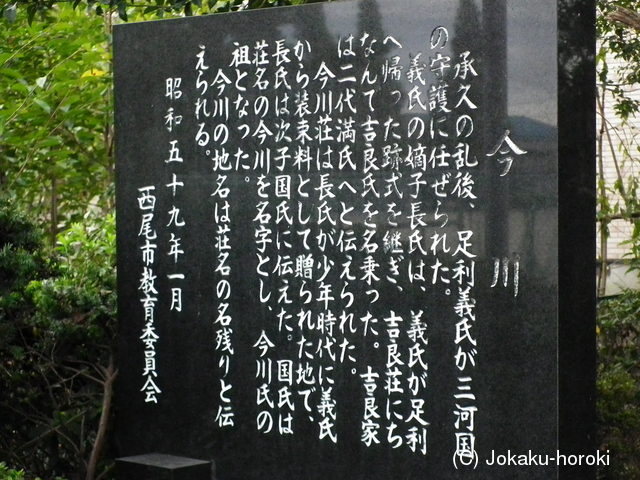 今川
承久の乱後、足利義氏が三河国
の守護に任ぜられた。
義氏の嫡子長氏は、義氏が足利
へ帰った跡式を継ぎ、吉良荘にち
なんで吉良氏を名乗った。吉良家
は二代満氏へと伝えられた。
今川荘は長氏が少年時代に義氏
から装束料として贈られた地で、
長氏は次子国氏に伝えた。国氏は
荘名の今川を名字とし、今川氏の
祖となった。
今川の地名は荘名の名残りと伝
えられる。
昭和五十九年一月
西尾市教育委員会
(C) Jokaku-horoki